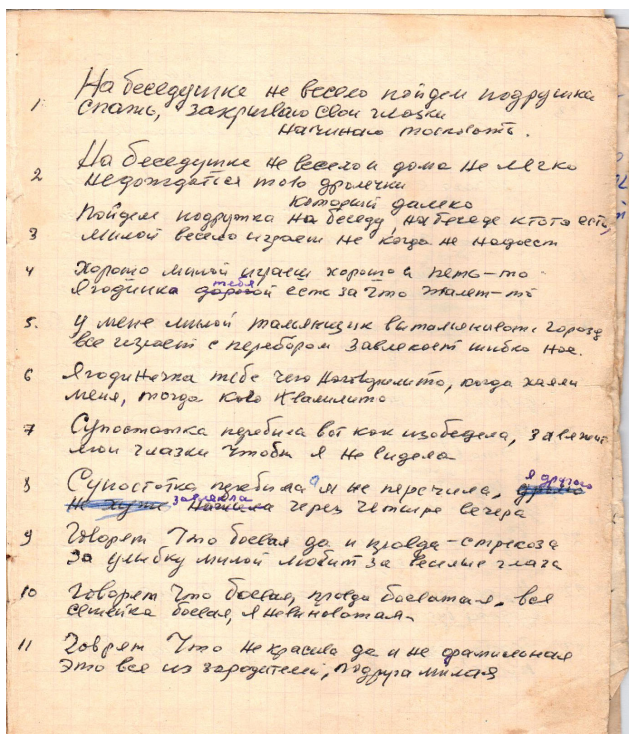 На беседушке не весело пойдем подружка
1 спать, закрываю свои глазки
начинаю тосковать.
2 На беседушке не весело и дома не легко
не дождатся того дролечки
который далеко
Пойдем подружка на беседу, на беседе кто то есть,
3 милой весело играет не когда не надоест
4 Хорошо милой играеш хорошо и петь-то
Ягодинка тебя есть за что жалет-то
5. У мене милой
все играет с перебором завлекает шибко нас.
6 Ягодиночка тебе чего наговорилито, когда хаяли
меня, тогда кого хвалилито
7 Супостатка перебила вот как изобедела,
мои глазки чтобы я не видела
8 Супостатка перебила а я не перечила, я другого
завлекла через четыре вечера
9 Говорят что боевая да и правда-стрекоза
за улыбку милой любит за веселые глаза
10 Говорят что боевая, правда боеватая. вся
семейка боевая, я невиноватая.
11 Говрят что не красива да и не фамильная
это все из за родителей, подруга милая